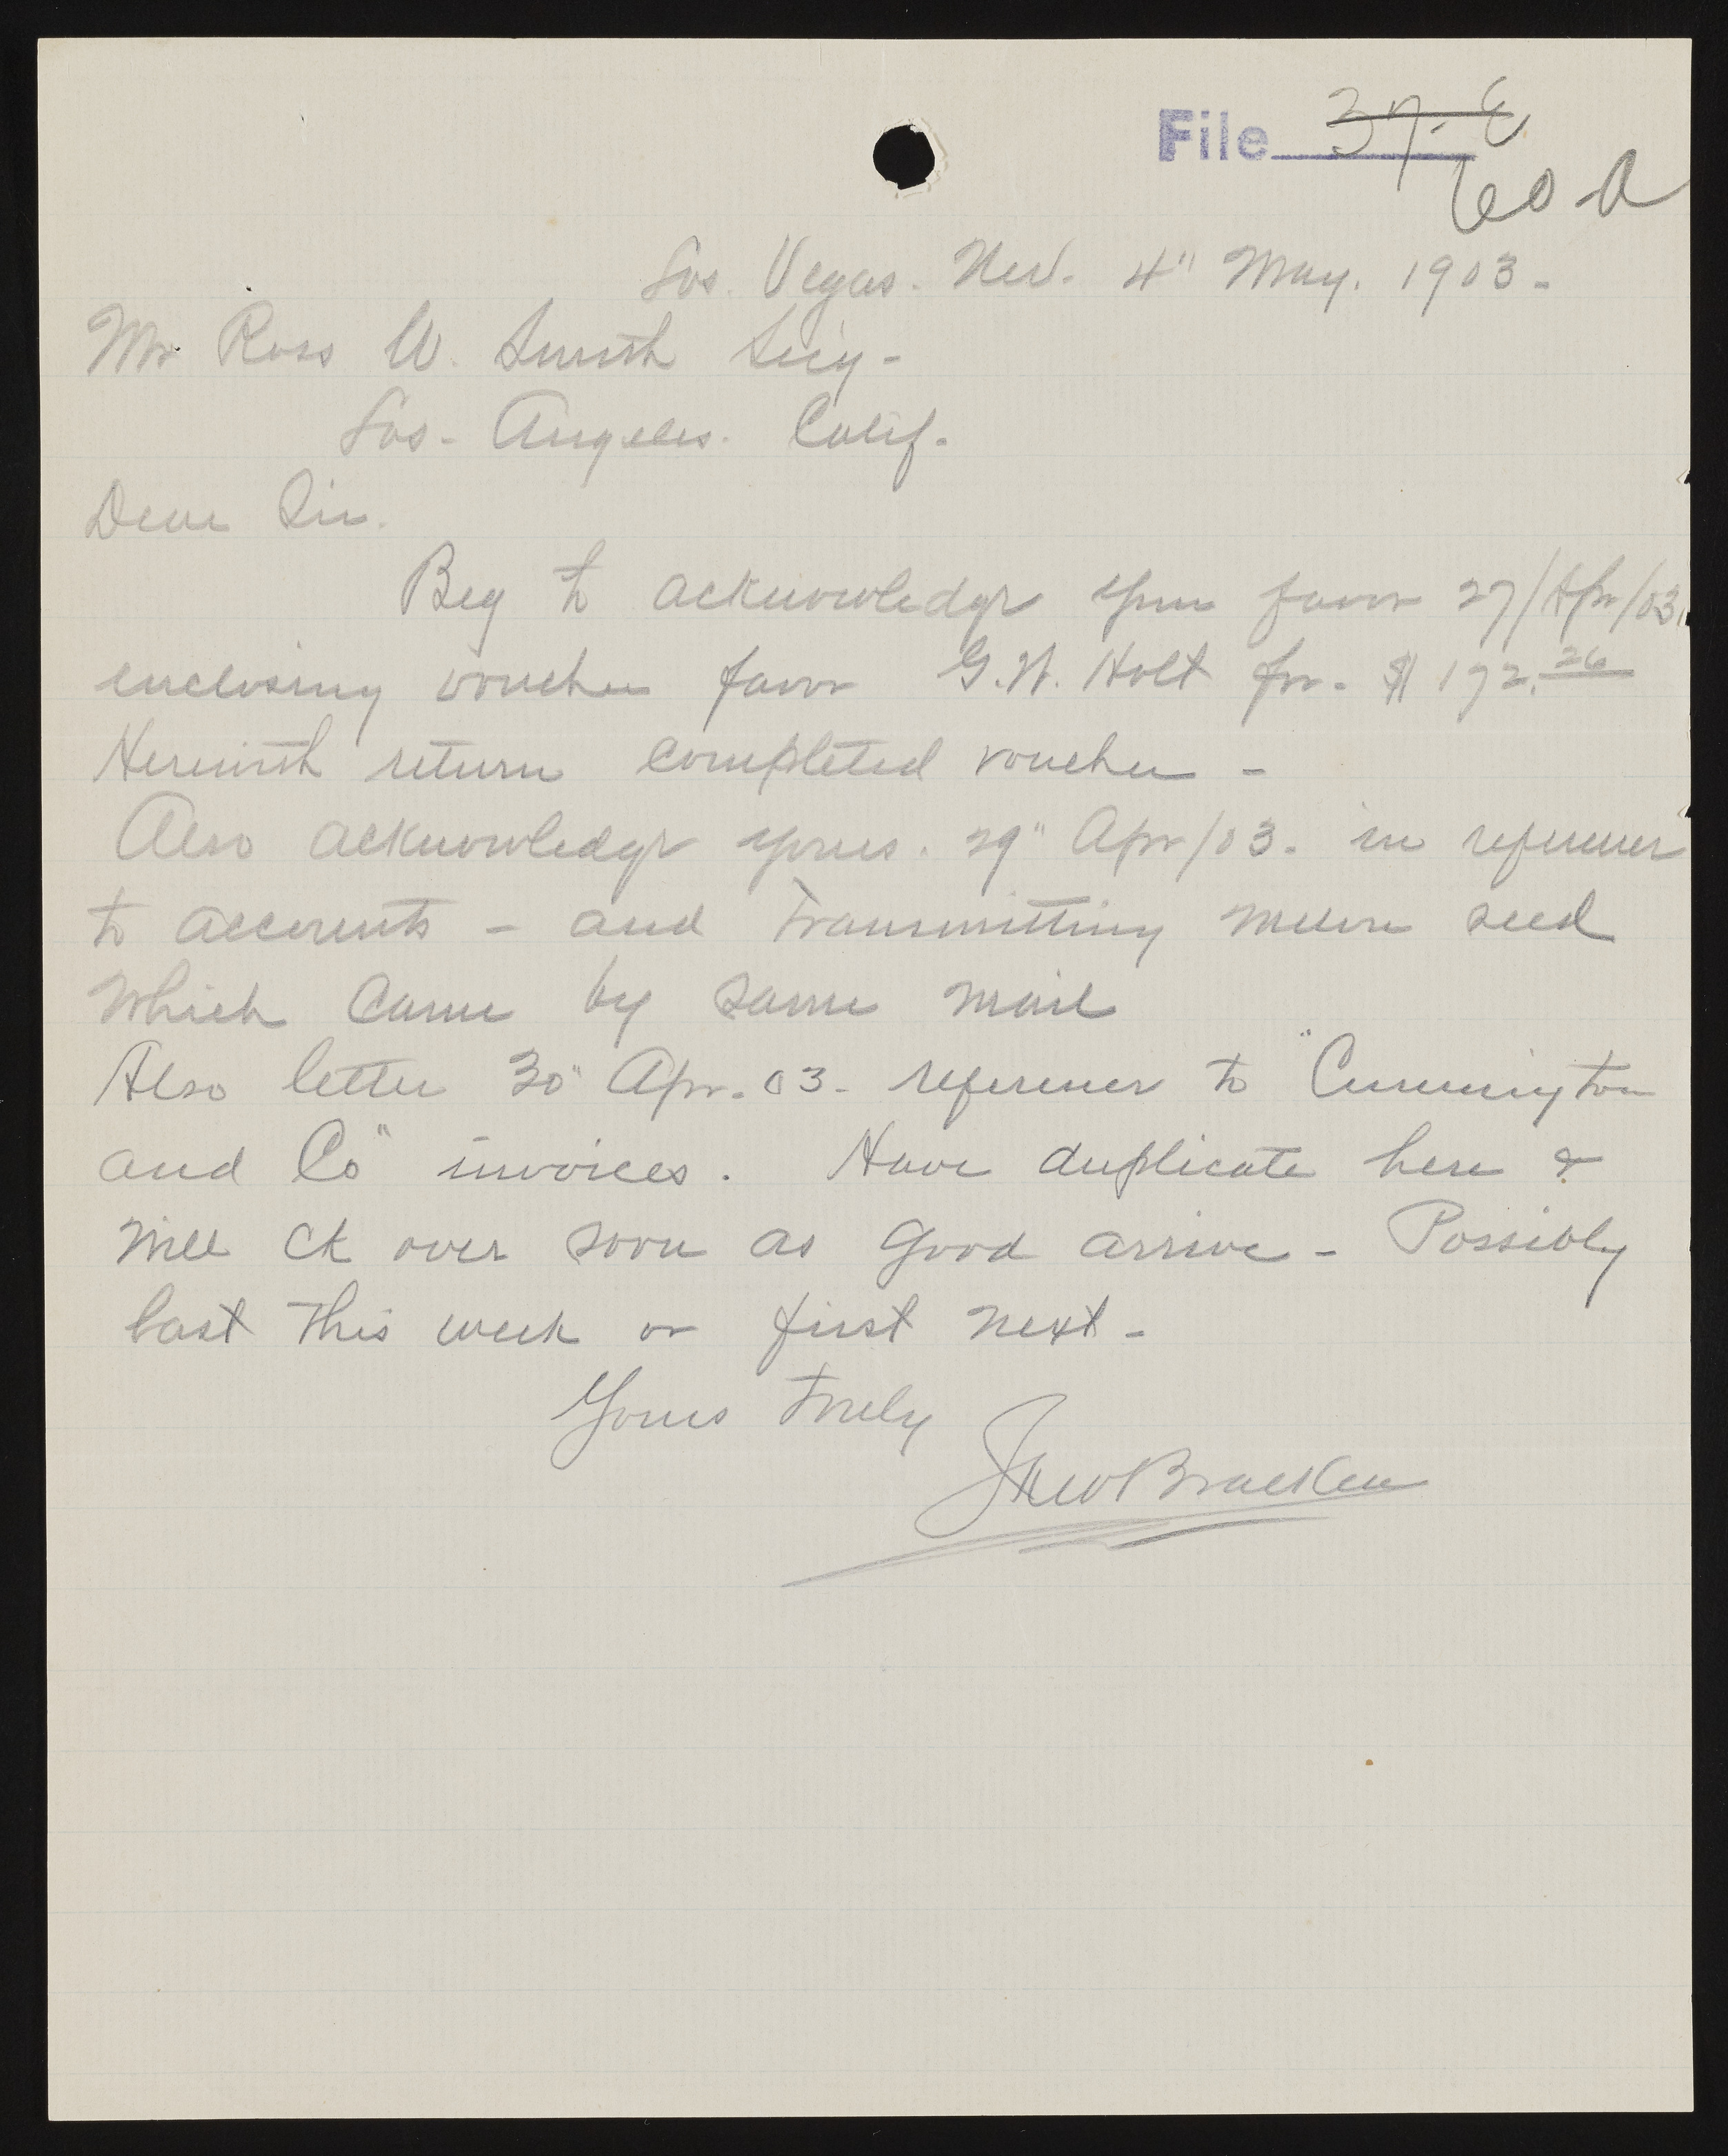 File 37-E
60-A
Los. Vegas. Nev. 4" May. 1903-
Mr Ross W. Smith Secy-
Los- Angeles. Calif.
Dear Sir.
Beg to acknowledge your favor 27/Apr/03.
enclosing voucher favor G.W. Holt for- $172.26
Herewith return completed voucher -
Also acknowledge yours. 29" Apr/03. in reference
to accounts - and transmitting melon seed
which came by same mail
Also letter 30" Apr. 03- reference to "Cunnington
and Co" invoices. Have duplicate here &
will ck over soon as good arrive - Possibly
last this week or first next -
Yours truly
Walter Bracken